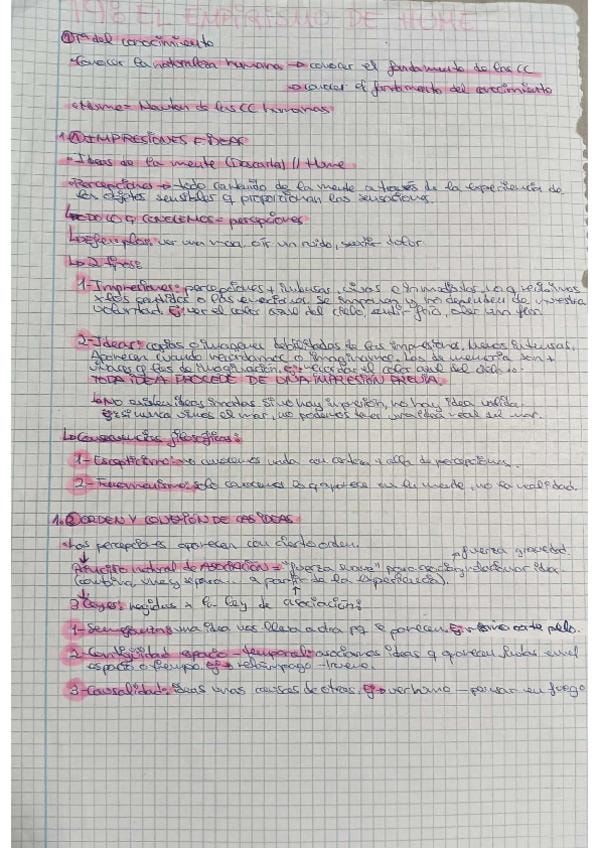 EL EMPIRISMO DE HUME
① Tª del conocimiento
-Conocer la naturaleza humana → conocer el fundamento de las CC
→ conocer el fundamento del conocimiento
-Hume = Newton de las CC humanas
1.① IMPRESIONES E IDEAS
-Ideas de la mente (Descartes) // Hume
-Percepciones → todo contenido de la mente a través de la experiencia de
los objetos sensibles q proporcionan las sensaciones.
↳TODO LO Q CONOCEMOS = percepciones
↳Ejemplo: ver una mesa, oír un ruido, sentir dolor.
↳2 tipos:
1-Impresiones: percepciones + intensas, vivas e inmediatas. Lo q recibimos
x los sentidos o las Se imponen y no dependen de nuestra
voluntad. Ej: ver el color azul del cielo, sentir frío, oler una flor.
2-Ideas: copias o imágenes debilitadas de las impresiones. Menos intensas.
Aparecen cuando recordamos o imaginamos. Las de memoria son +
vivaces q las de imaginación. Ej → recordar el color azul del cielo
TODA IDEA PROCEDE DE UNA IMPRESIÓN PREVIA
↳No existen ideas innatas si no hay impresión, no hay idea válida.
Ej: si nunca vimos el mar, no podemos tener una idea real del mar.
↳Consecuencias filosóficas:
1-Escepticismo: no conocemos nada con certeza + allá de percepciones.
2-Fenomenismo: solo conocemos lo q aparece en la mente, no la realidad.
1.② ORDEN Y CONEXIÓN DE LAS IDEAS
-Las percepciones aparecen con cierto orden.
fuerza gravedad.
Principio natural de ASOCIACIÓN = "fuerza suave" para idea
(combina, une y separa... a partir de la experiencia).
3 leyes: regidas x la ley de asociación:
1-Semejanza: una idea nos lleva a otra pq se parecen. Ej → corte pelo.
2-Contigüidad espacio-temporal: asociamos ideas q aparecen juntas en el
espacio o tiempo. Ej → relámpago - trueno.
3-Causalidad: ideas unas causas de otras. Ej → ver humo - pensar en fuego